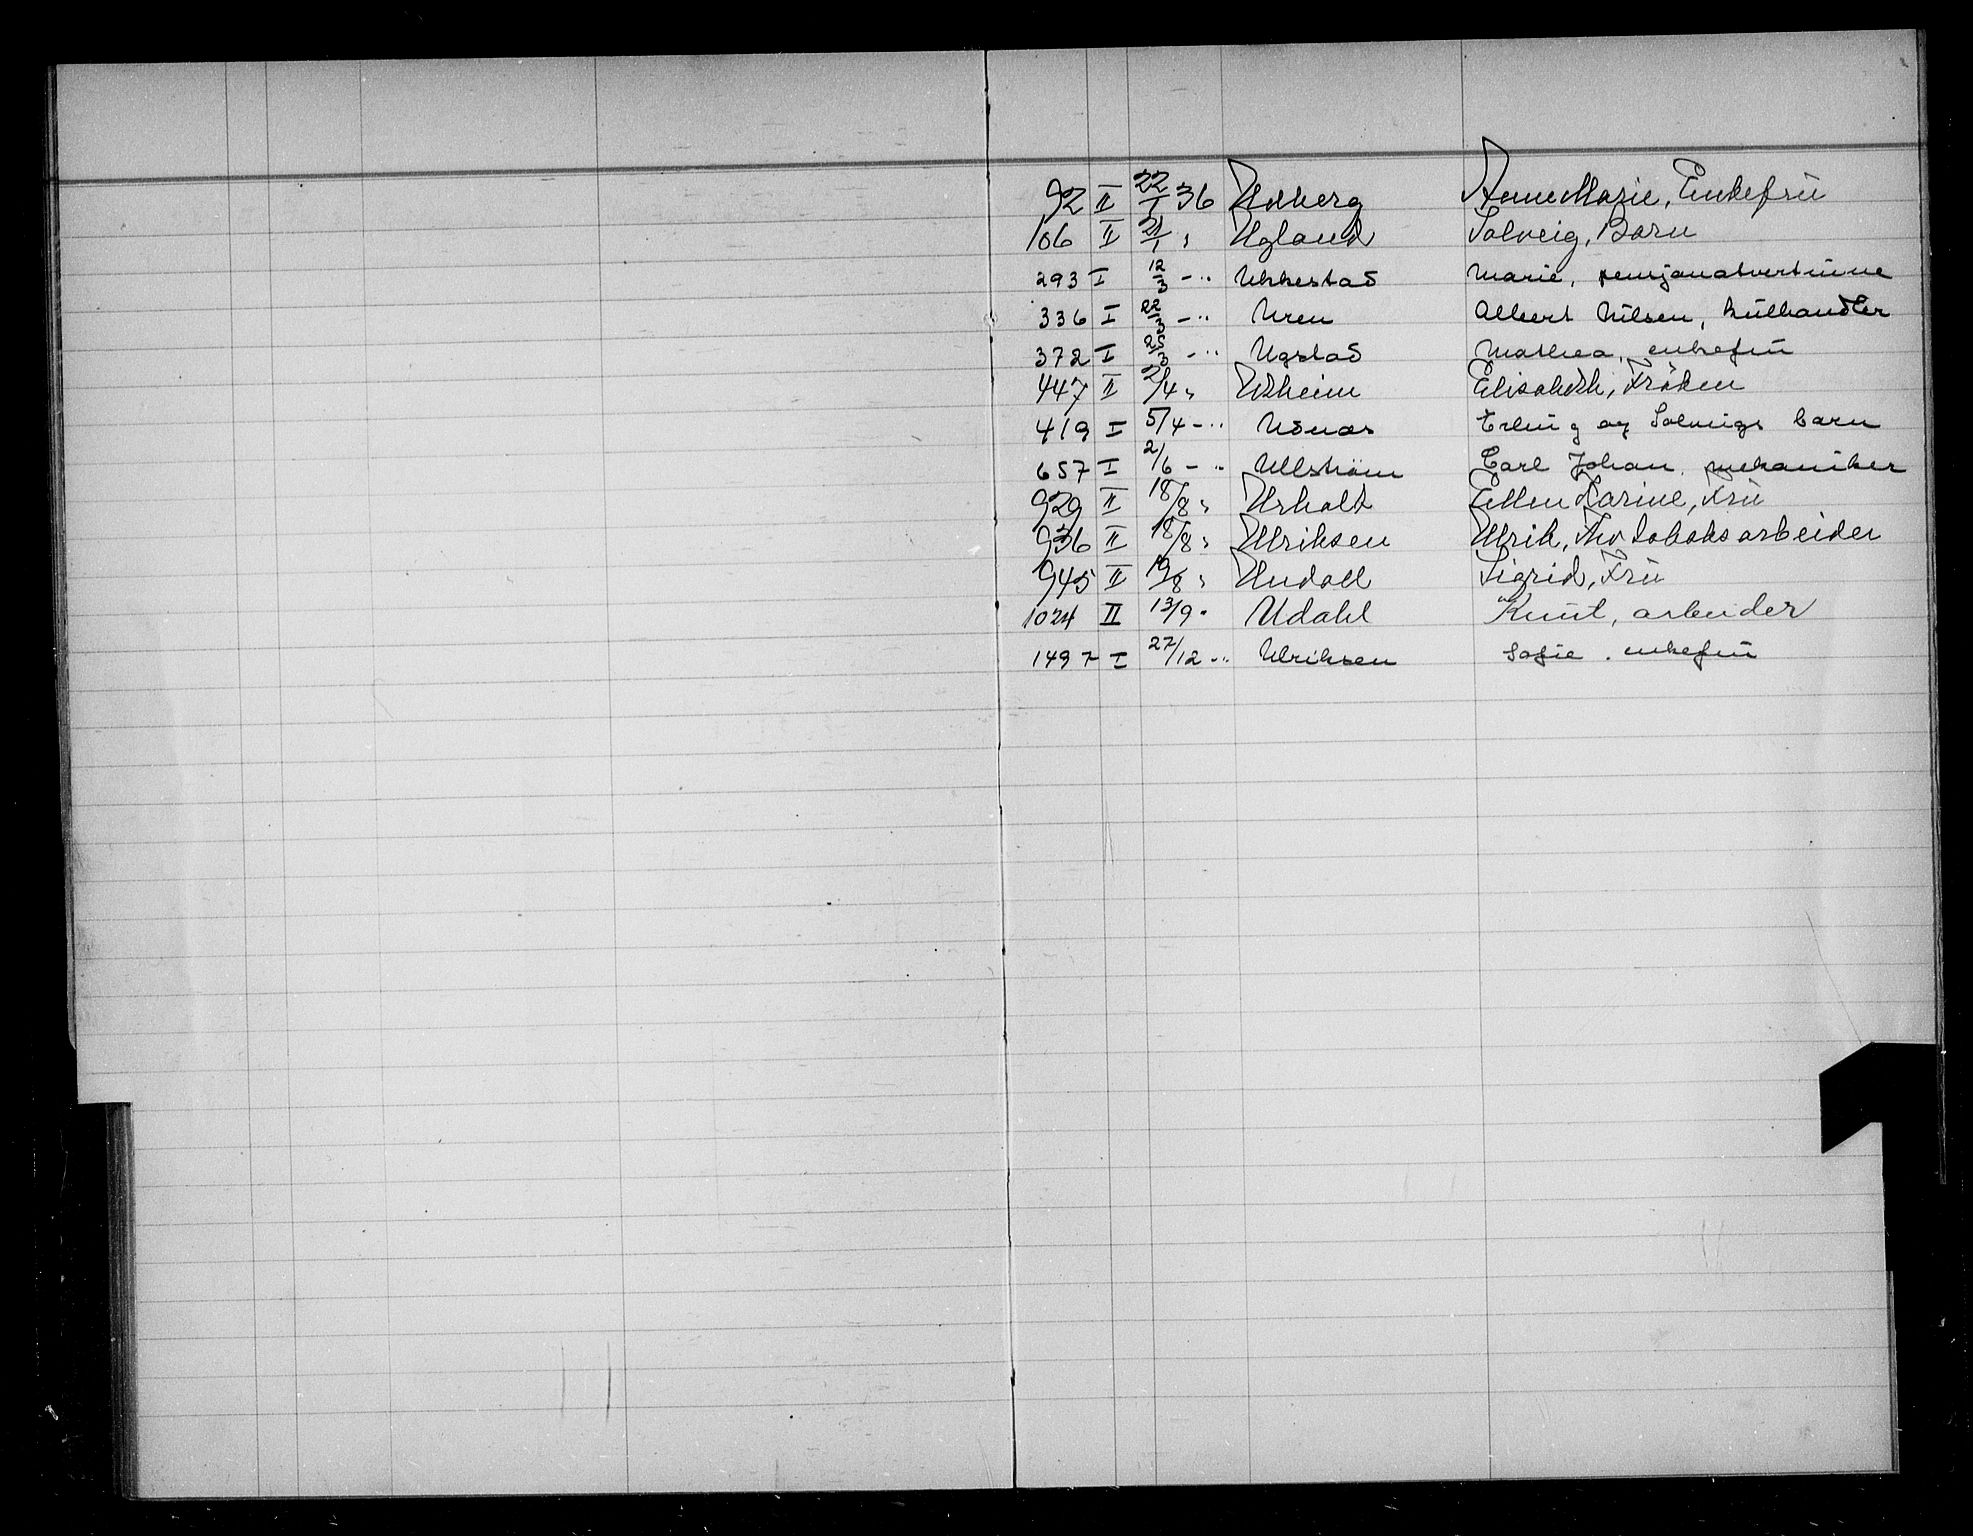 92 II 22/1 36 Udberg Anne Marie, Enkefrü
106 II 21/1 " Ugland Solveig, Barn
293 I 12/3 - " Ukkestad Marie, pensjonatvertinne
336 I 22/3 - " Uren Albert Nilsen, külhandler
372 I 25/3 - " Ugstad Mathea, enkefrü
447 II 2/4 " Elisabeth, Fröken
419 I 5/4 - " Udnæs Erling og Solveigs barn
657 I 2/6 - " Ullström Carl Johan, mekaniker
929 II 18/8 " Urholt Ellen Karine, Frü
936 II 18/8 " Ulriksen Ulrik, Tobaksarbeider
945 II 19/8 " Undall Sigrid, Frü
1024 II 13/9 " Udahl Knut, arbeider
1497 I 27/12 - " Ulriksen Sofie, enkefrü